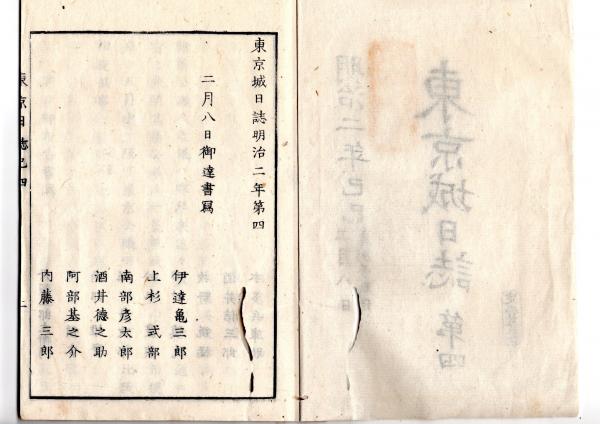 東京城日誌 第四
明治二年己巳二月八日
東京城日誌明治二年第四
二月八日御達書寫
伊達亀三郎
上杉式部
南部彦太郎
酒井徳之助
阿部基之介
内藤三郎
東京日誌巳四